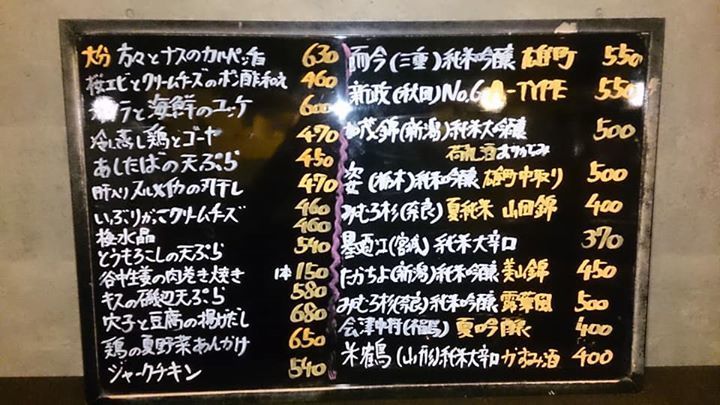 大分 方々とナスのカルペッチョ 630
桜エビとクリームチーズのポン酢和え 460
と海鮮のユッケ 600
冷し蒸し鶏とゴーヤ 470
あしたばの天ぷら 450
肝入りスルメイカの丸干し 470
いぶりがっこクリームチーズ 460
梅水晶 460
とうもろこしの天ぷら 540
谷中生姜の肉巻き焼き 1本 150
キスの磯辺天ぷら 580
穴子と豆腐の揚げだし 680
鶏の夏野菜あんかけ 650
ジャークチキン 540
而今(三重)純米吟醸 雄町 550
新政(秋田)No.6 A-TYPE 550
加茂錦(新潟)純米大吟醸 500
荷札酒
姿(栃木)純米吟醸 雄町中取り 500
みむろ杉(奈良)夏純米 山田錦 400
墨廼江(宮城)純米大辛口 370
たかちよ(新潟)純米吟醸 美山錦 450
みむろ杉(奈良)純米吟醸 露葉風 500
会津中将(福島)夏吟醸 400
米鶴(山形)純米大辛口 かすみ酒 400